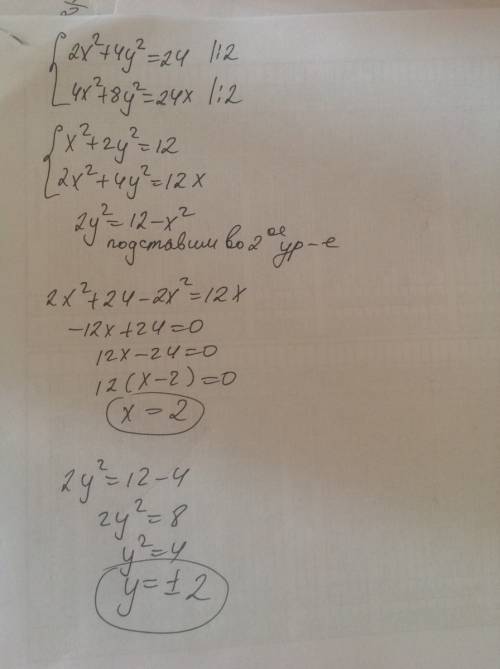 2x²+4y²=24 |:2
4x²+8y²=24x |:2
x²+2y²=12
2x²+4y²=12x
2y²=12-x²
подставим во 2ое ур-е
2x²+24-2x²=12x
-12x+24=0
12x-24=0
12(x-2)=0
x=2
2y²=12-4
2y²=8
y²=4
y=±2